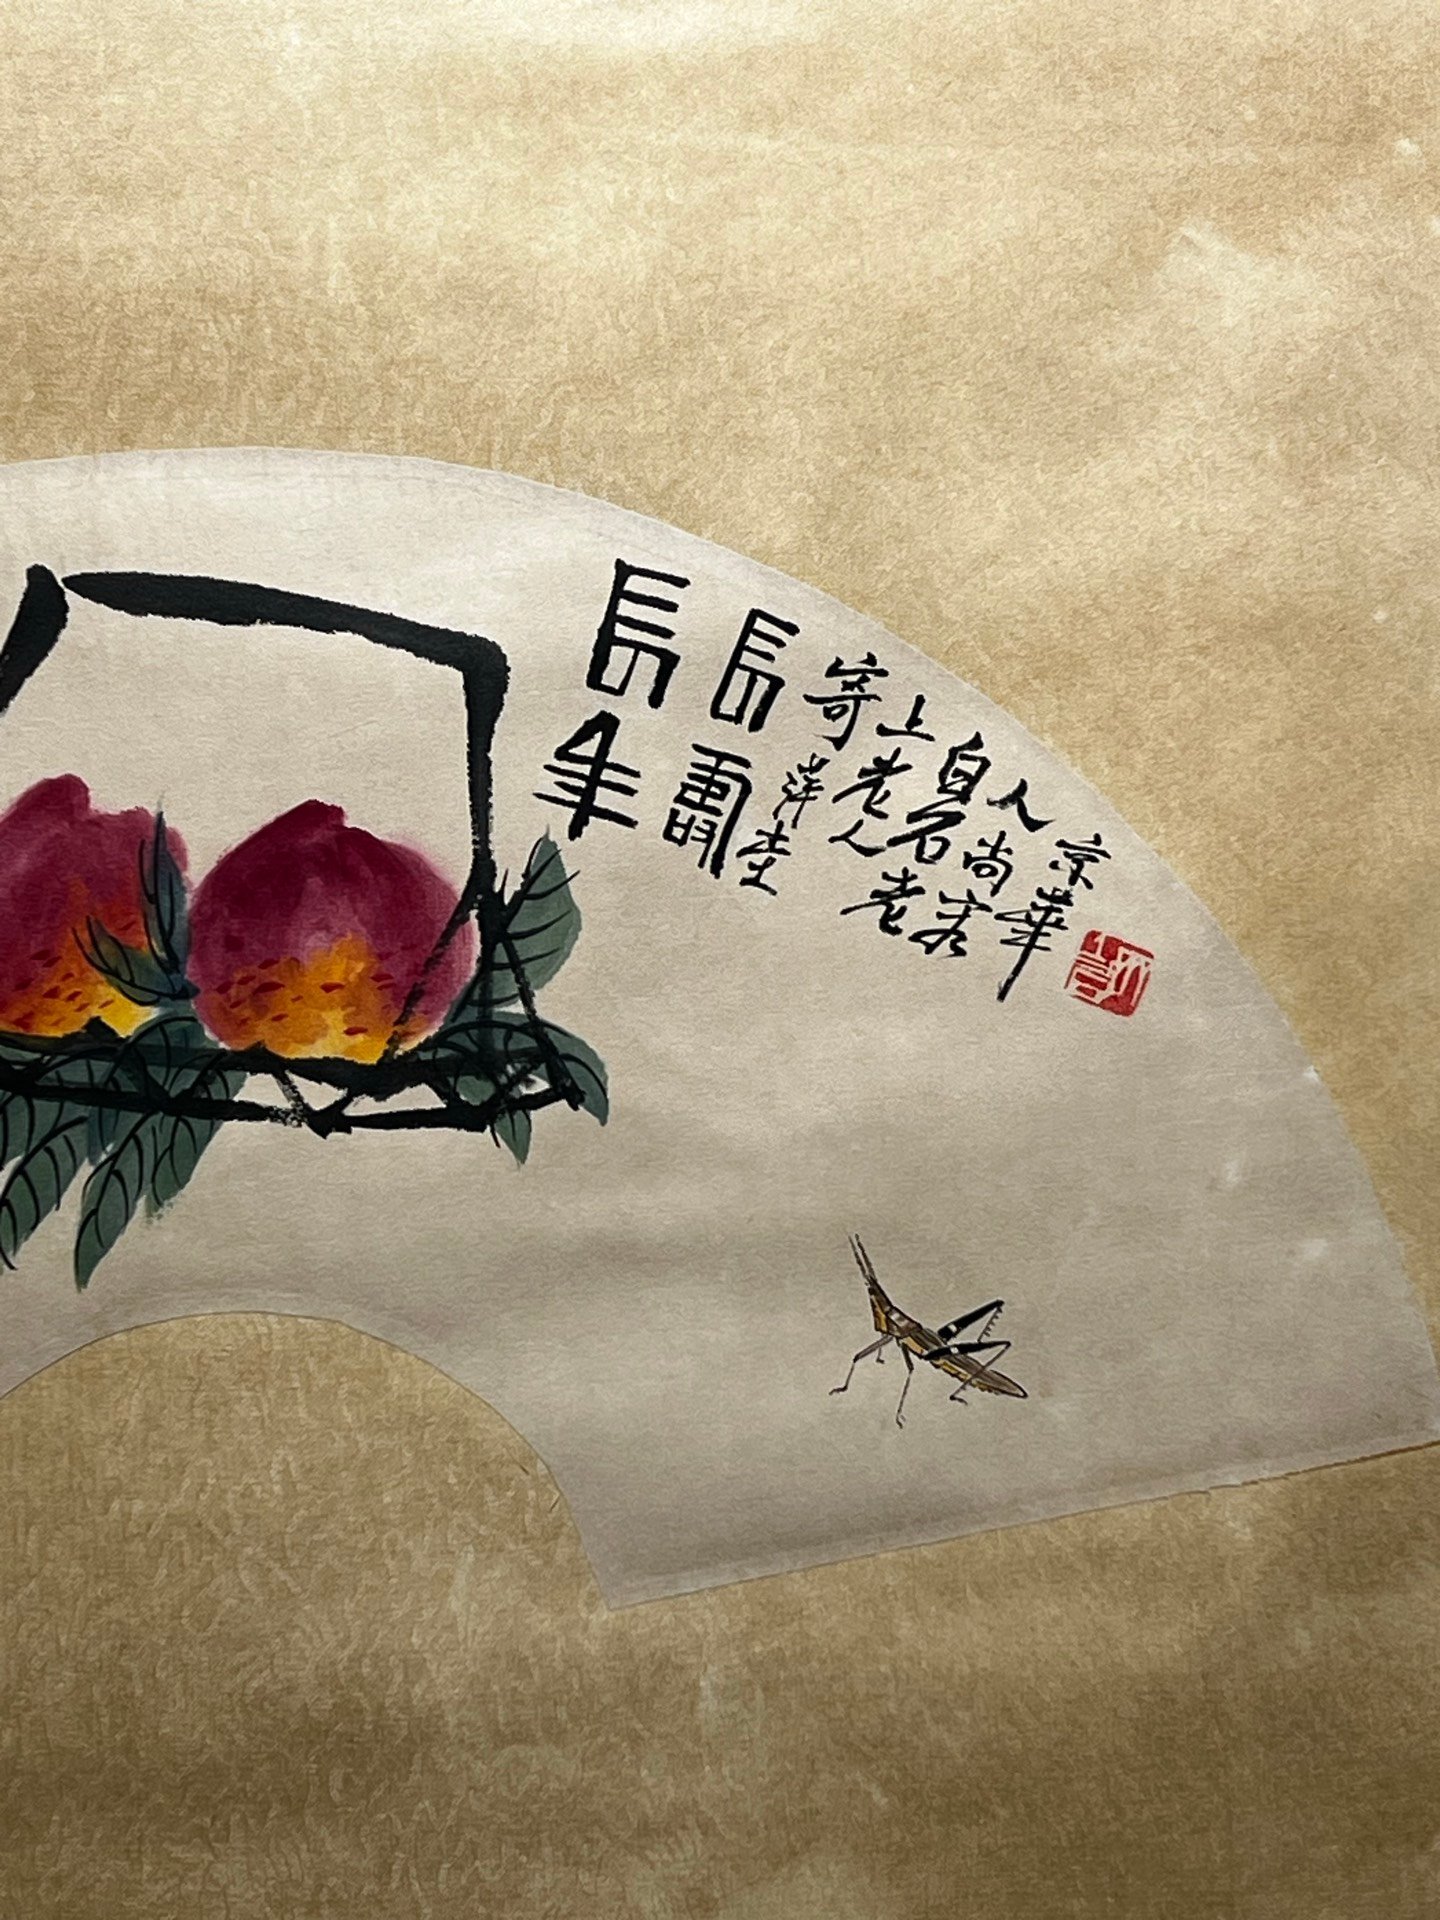 長年
長壽
寄萍坣
上老人
白石老
人尚客
京華